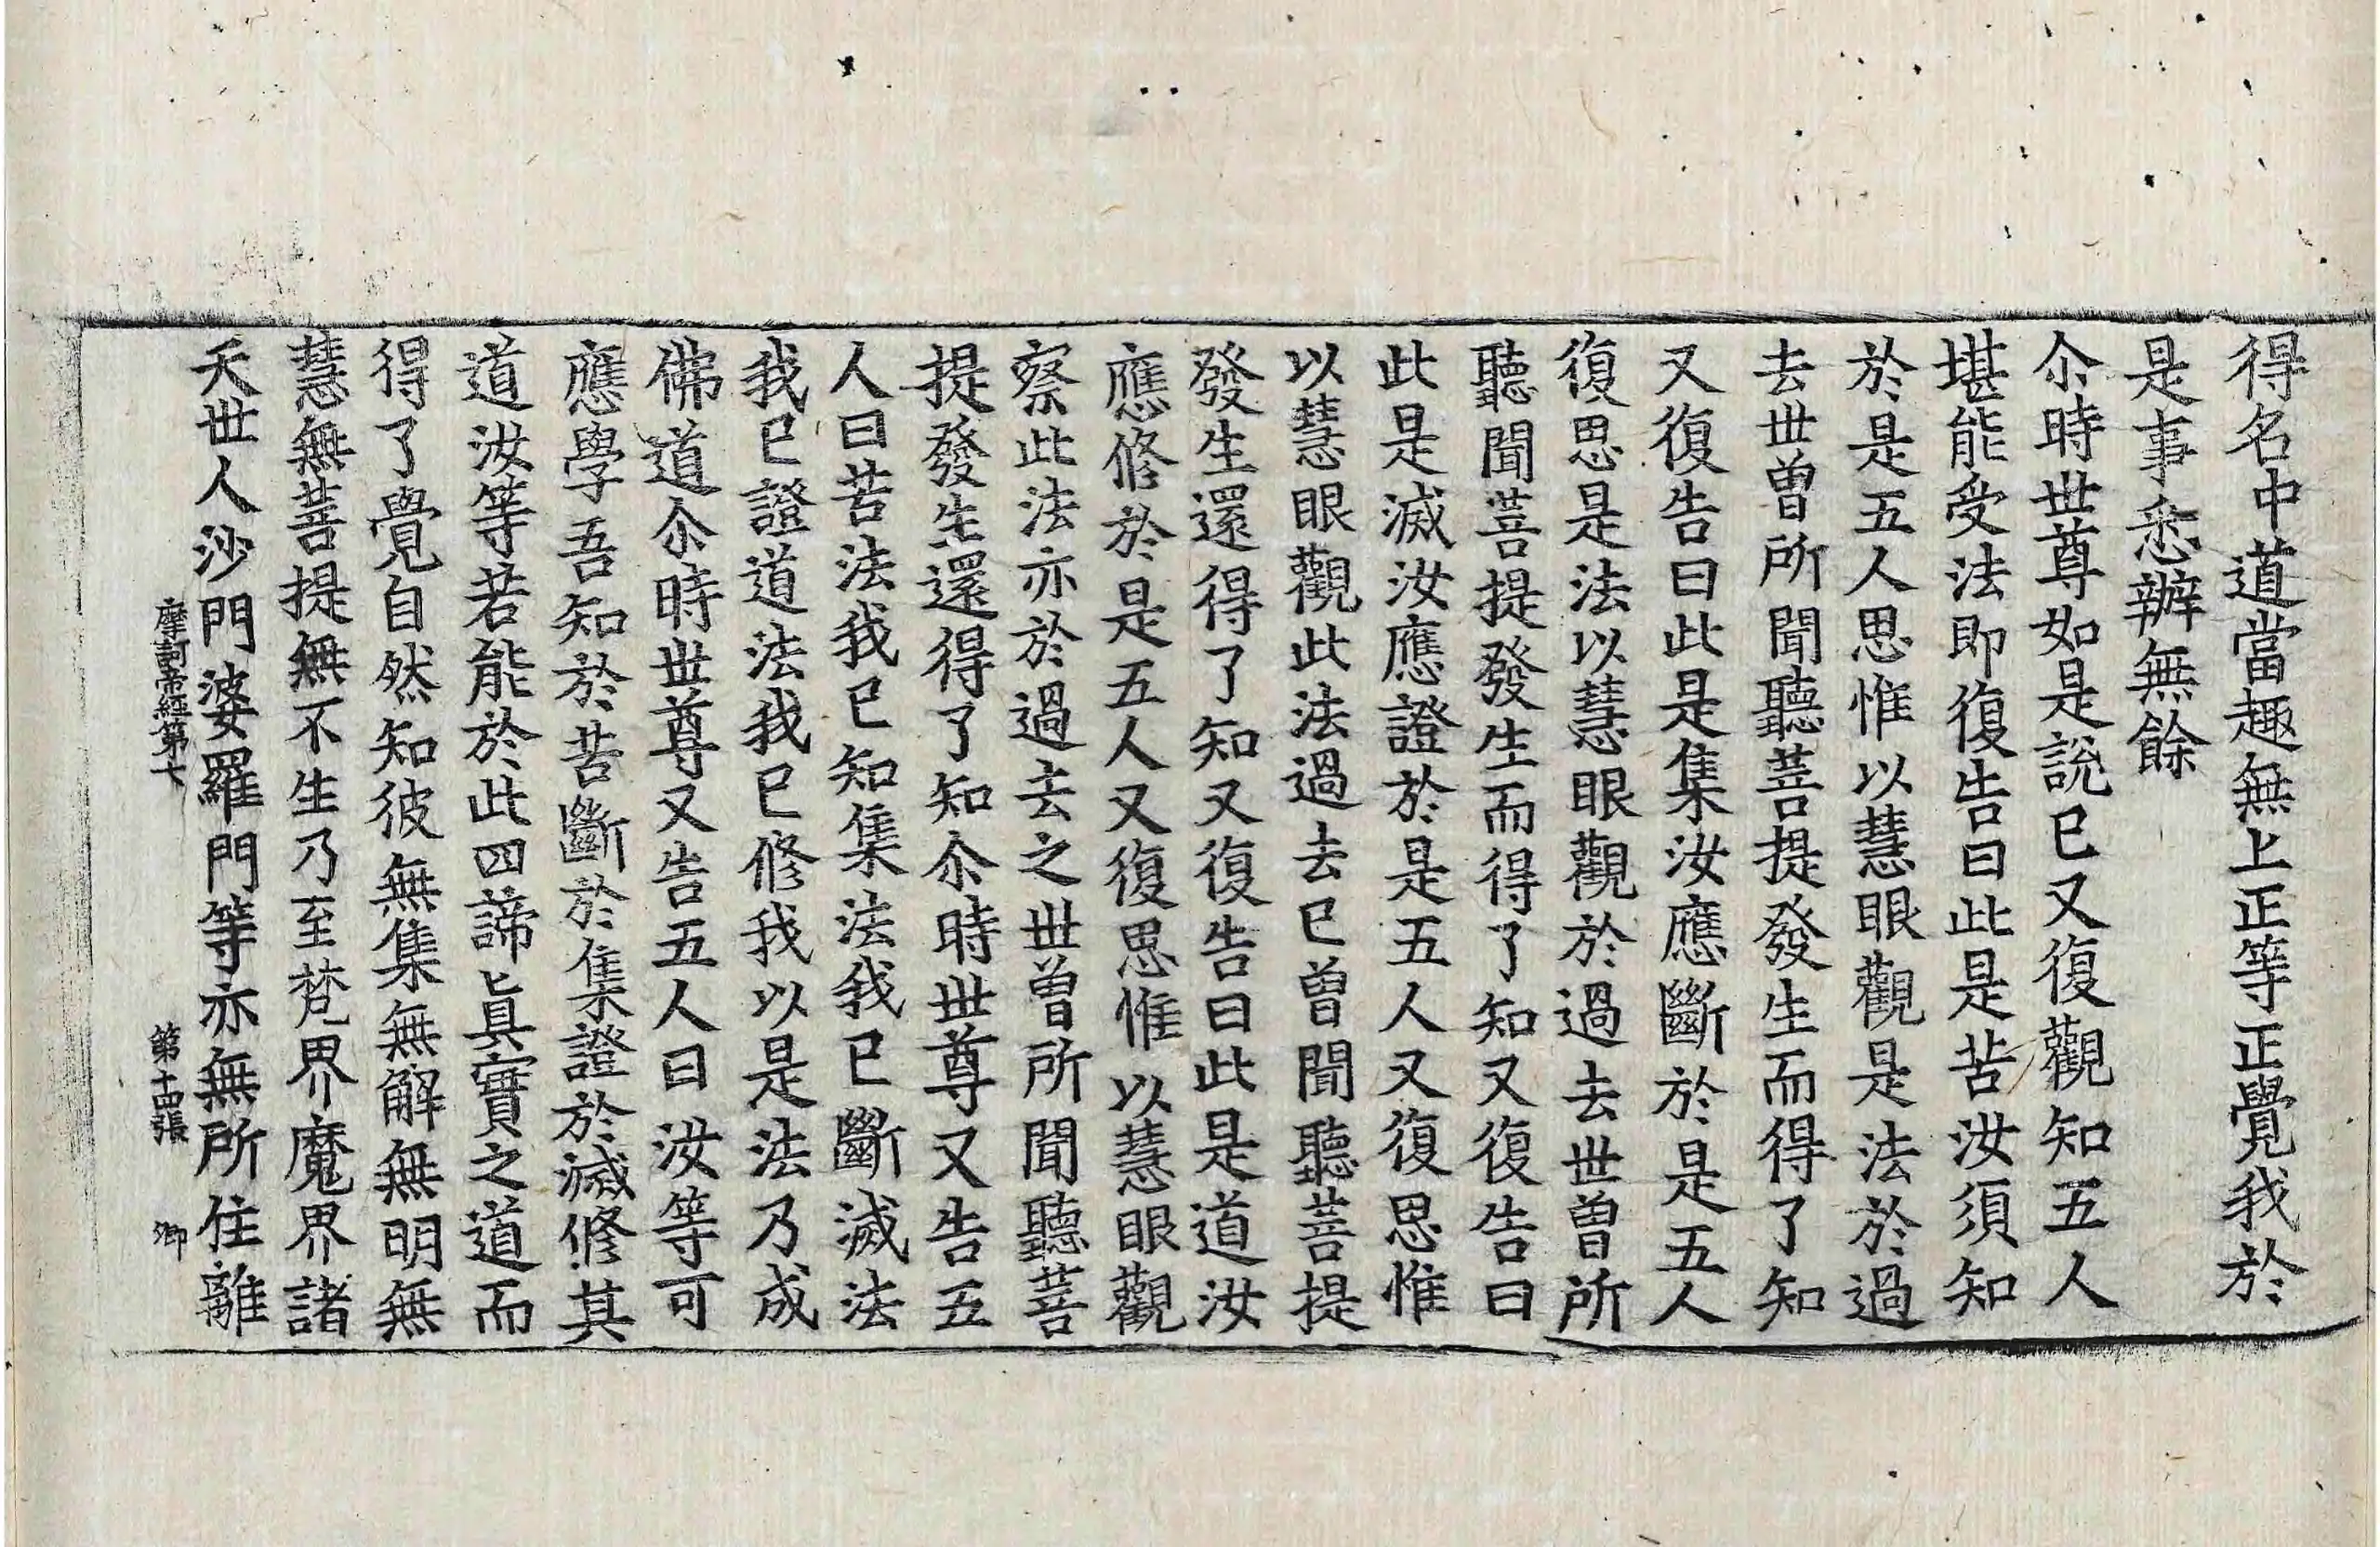 得名中道當趣無上正等正覺我於
是事悉辦無餘
尒時世尊如是說已又復觀知五人
堪能受法即復告曰此是苦汝須知
於是五人思惟以慧眼觀是法於過
去世曾所聞聽菩提發生而得了知
又復告曰此是集汝應斷於是五人
復思是法以慧眼觀於過去世曾所
聽聞菩提發生而得了知又復告曰
此是滅汝應證於是五人又復思惟
以慧眼觀此法過去已曾聞聽菩提
發生還得了知又復告曰此是道汝
應修於是五人又復思惟以慧眼觀
察此法亦於過去之世曾所聞聽菩
提發生還得了知尒時世尊又告五
人曰苦法我已知集法我已斷滅法
我已證道法我已修我以是法乃成
佛道尒時世尊又告五人曰汝等可
應學吾知於苦斷於集證於滅修其
道汝等若能於此四諦眞實之道而
得了覺自然知彼無集無解無明無
慧無菩提無不生乃至梵界魔界諸
天世人沙門婆羅門等亦無所住離
摩訶帝經第七 第十四張 卿